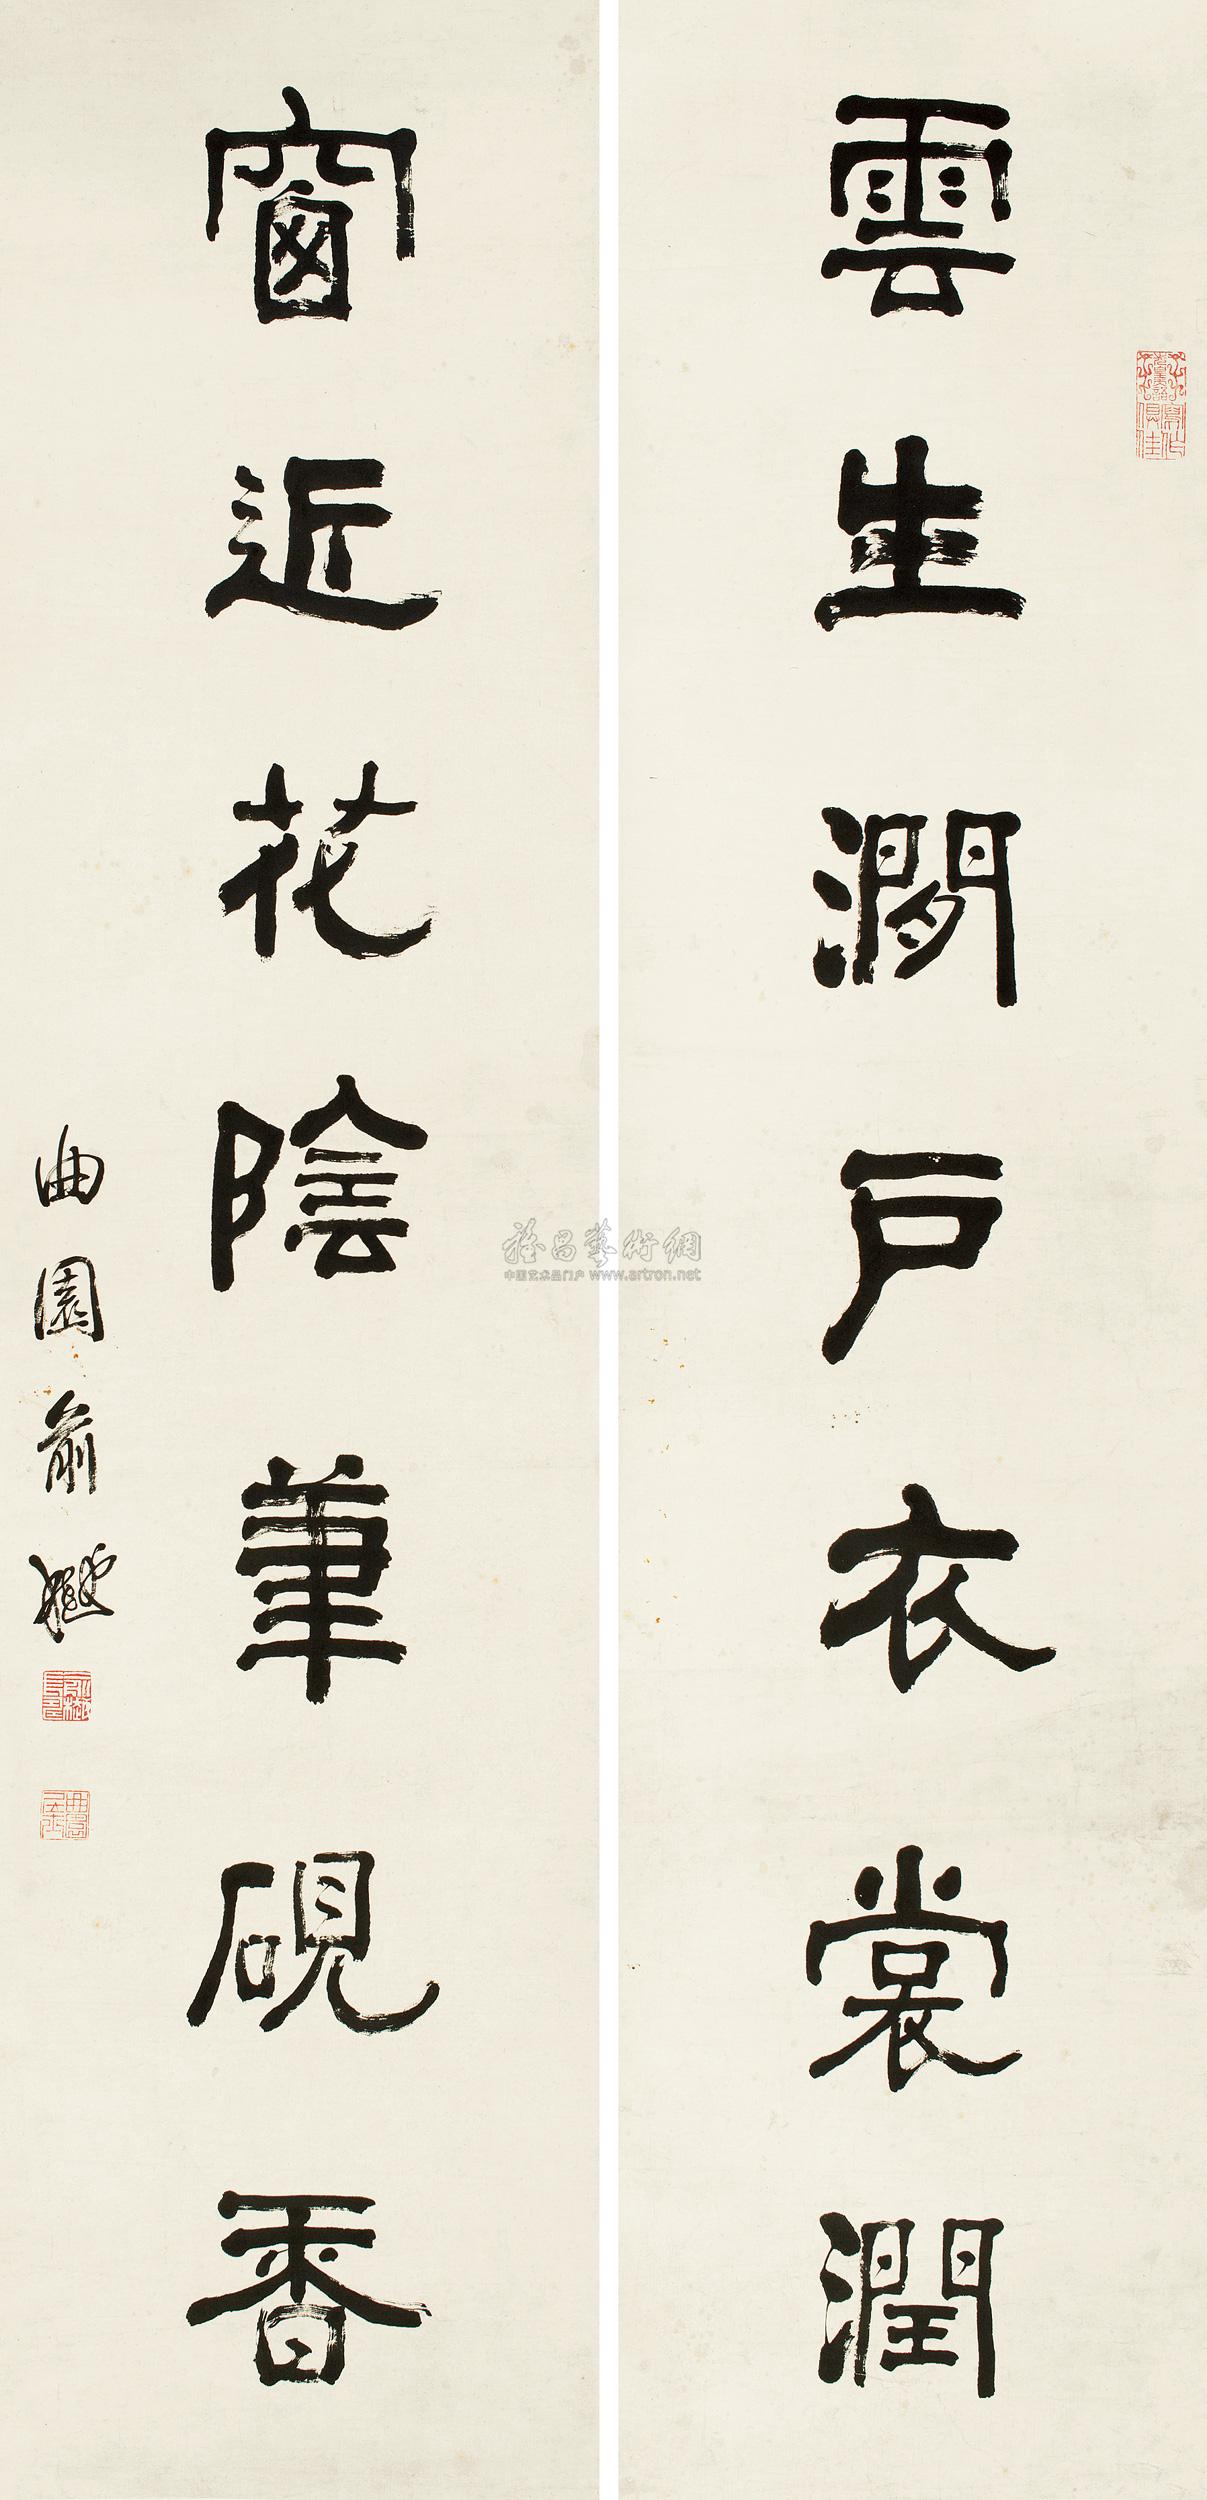 雲生澗戶衣裳潤
窗近花陰筆硯香
曲園俞樾
雅昌藝術網
中国艺术品门户 www.artron.net